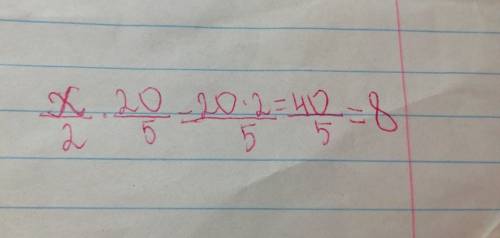 x/2 · 20/5 - 20·2/5 = 40/5 = 8